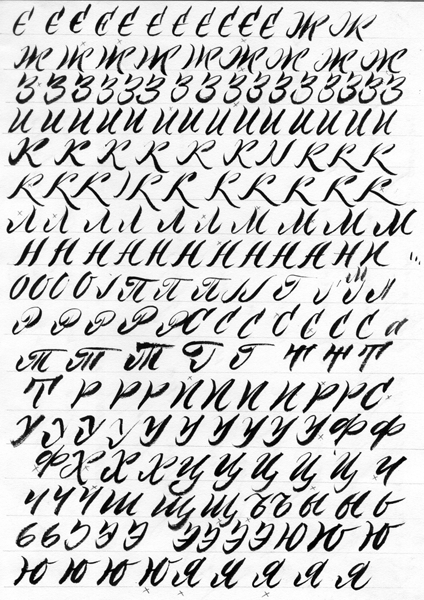 Е Е Е Е Е Е Е Е Е Е Е Ж Ж
Ж Ж Ж Ж Ж Ж Ж Ж Ж
З З З З З З З З З З З З З З З
И И И И И И И И И И И И
К К К К К К К И К К К
К К К К К К К К К К
Л Л Л Л Л Л М М М М М
Н Н Н Н Н Н Н Н Н Н Н Н
О О О О П П П Г П
Р Р Р Р Р С С С С С С С а
Т Т Т Г Г
Т Р Р Р И И И И И Р Р С
У У У У У У У У У Ф Ф
Ф Х Х Х Ц Ц Ц Ц Ц Ц Ч
Ч Ч Ч Ш Щ Щ Ъ Ъ Ы Ы Ь
Ь Ь Э Э Э Э Э Э Э Ю Ю Ю
Ю Ю Ю Ю Я Я Я Я Я Я